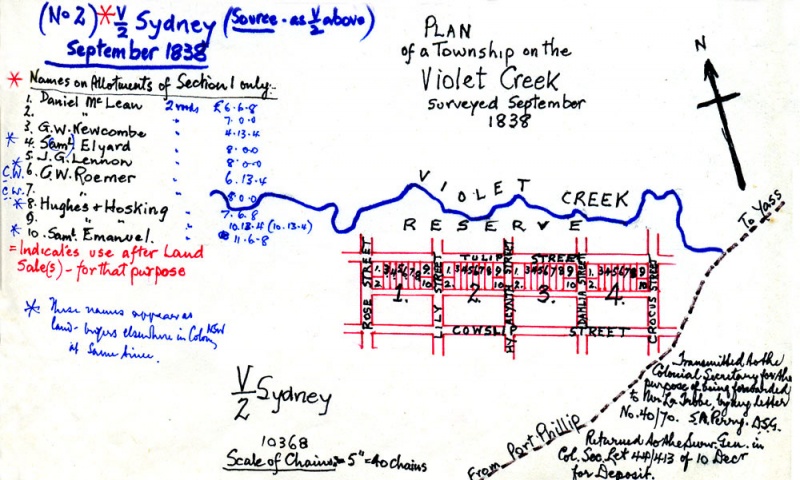 (No 2) * V/2 Sydney (Source - as V/2 above)
September 1838
* Names on Allotments of Section 1 only:-
1. Daniel McLean 2 rds £6.6.8
2. " " 7.0.0
3. G.W. Newcombe " 4.13.4
* 4. Saml. Elyard " 8.0.0
* 5. J.G. Lennon " 8.0.0
C.W. 6. G.W. Roemer " 6.13.4
C.W. 7. " 8.0.0
* 8. Hughes & Hosking " 7.6.8
9. " " " 10.13.4 (10.13.4)
* 10. Saml. Emanuel. " 11-6-8
= Indicates use after Land
Sale(s) - for that purpose
* These names appear as
land-buyers elsewhere in Colony NSW
at same time.
PLAN
of a Township on the
Violet Creek
surveyed September
1838
N
VIOLET CREEK
RESERVE
To Yass
TULIP STREET
ROSE STREET
LILY STREET
HYACINTH STREET
DAHLIA STREET
CROCUS STREET
1. 3 4 5 6 7 8 9
2. 10
1.
1. 3 4 5 6 7 8 9
2. 10
2.
1. 3 4 5 6 7 8 9
2. 10
3.
1. 3 4 5 6 7 8 9
2. 10
4.
COWSLIP STREET
V/2 Sydney
10368
Scale of Chains:- 5" = 40 chains
From Port Phillip
Transmitted to the
Colonial Secretary for the
purpose of being forwarded
to Mr. La Trobe, by my letter
No. 40/70. S.A. Perry. D.S.G.
Returned to the Surv. Gen. in
Col. Sec. Let 44/413 of 10 Decr
for Deposit.